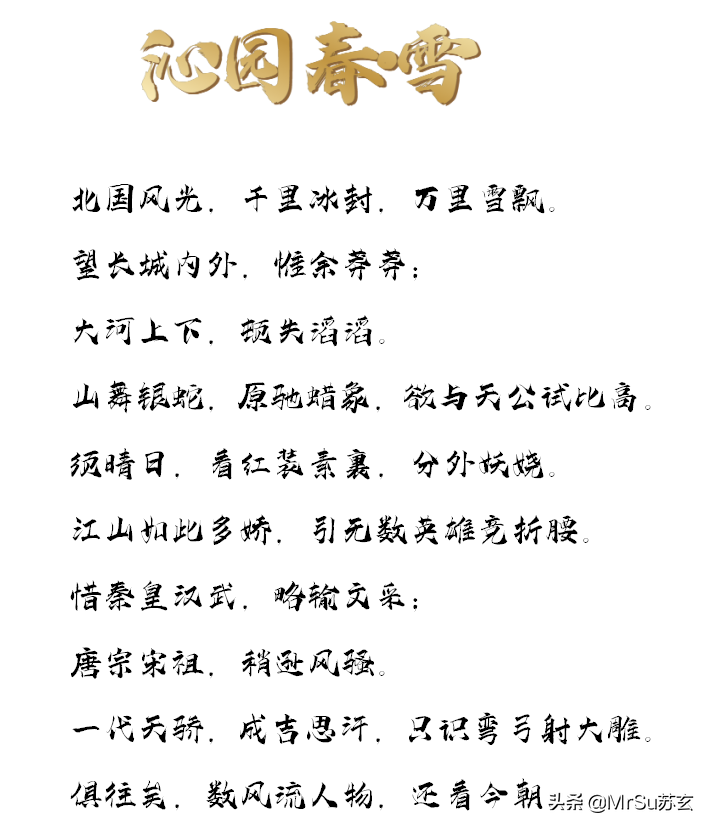 沁园春·雪
北国风光，千里冰封，万里雪飘。
望长城内外，惟余莽莽；
大河上下，顿失滔滔。
山舞银蛇，原驰蜡象，欲与天公试比高。
须晴日，看红装素裹，分外妖娆。
江山如此多娇，引无数英雄竞折腰。
惜秦皇汉武，略输文采；
唐宗宋祖，稍逊风骚。
一代天骄，成吉思汗，只识弯弓射大雕。
俱往矣，数风流人物，还看今朝
头条 @MrSu苏玄